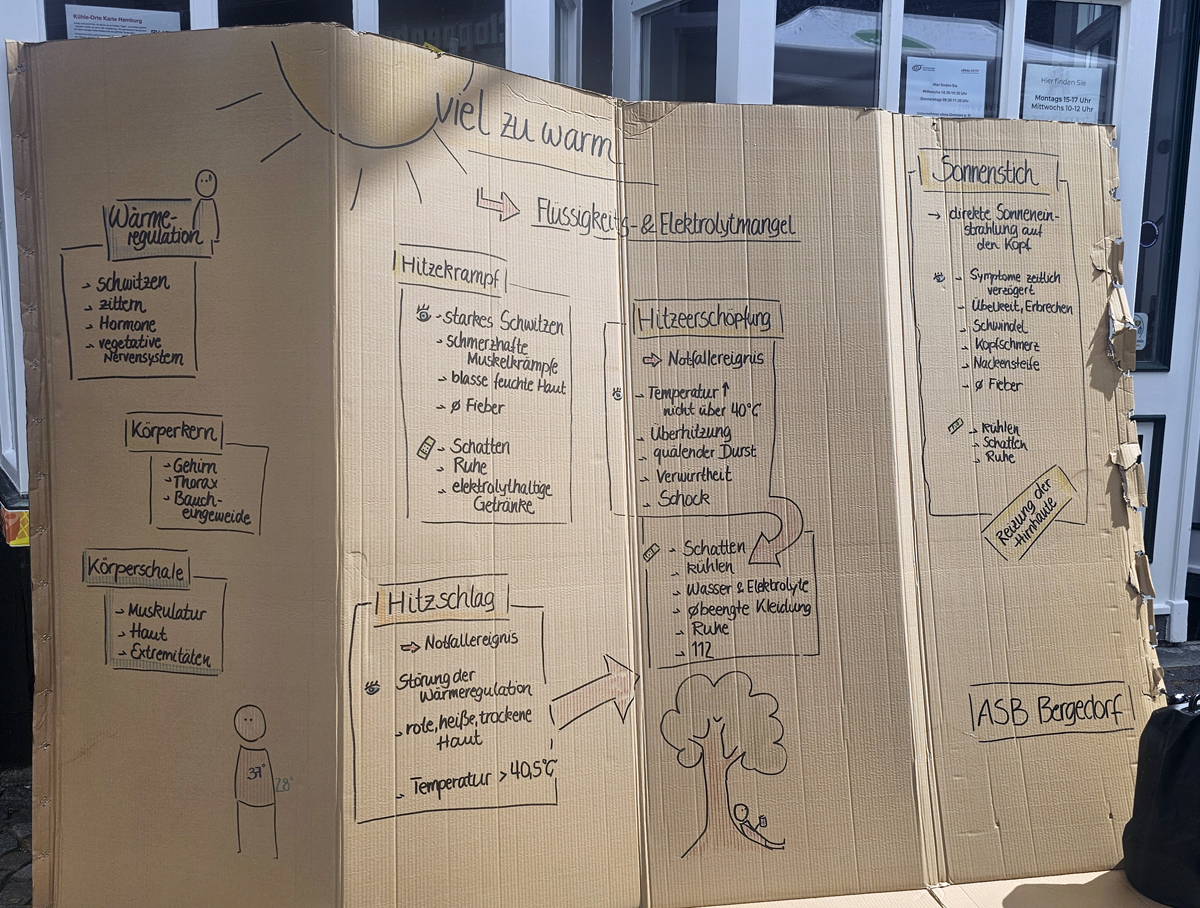 Kühle-Orte Karte Hamburg
Hier finden Sie
Montags 15-17 Uhr
Mittwochs 10-12 Uhr
viel zu warm
Flüssigkeits- & Elektrolytmangel
Wärme-
regulation
→ schwitzen
→ zittern
→ Hormone
→ vegetative
Nervensystem
Körperkern
→ Gehirn
→ Thorax
→ Bauch-
eingeweide
Körperschale
→ Muskulatur
→ Haut
→ Extremitäten
37°
28°
Hitzekrampf
- starkes Schwitzen
→ schmerzhafte
Muskelkrämpfe
→ blasse feuchte Haut
→ ø Fieber
→ Schatten
→ Ruhe
→ elektrolythaltige
Getränke
Hitzschlag
⇒ Notfallereignis
Störung der
Wärmeregulation
→ rote, heiße, trockene
Haut
→ Temperatur > 40,5°C
Hitzeerschöpfung
⇒ Notfallereignis
→ Temperatur ↑
nicht über 40°C
→ Überhitzung
→ quälender Durst
→ Verwirrtheit
→ Schock
→ Schatten
→ kühlen
→ Wasser & Elektrolyte
→ ø beengte Kleidung
→ Ruhe
→ 112
Sonnenstich
→ direkte Sonnenein-
strahlung auf
den Kopf
→ Symptome zeitlich
verzögert
→ Übelkeit, Erbrechen
→ Schwindel
→ Kopfschmerz
→ Nackensteife
→ ø Fieber
→ kühlen
→ Schatten
→ Ruhe
Reizung der
Hirnhäute
ASB Bergedorf